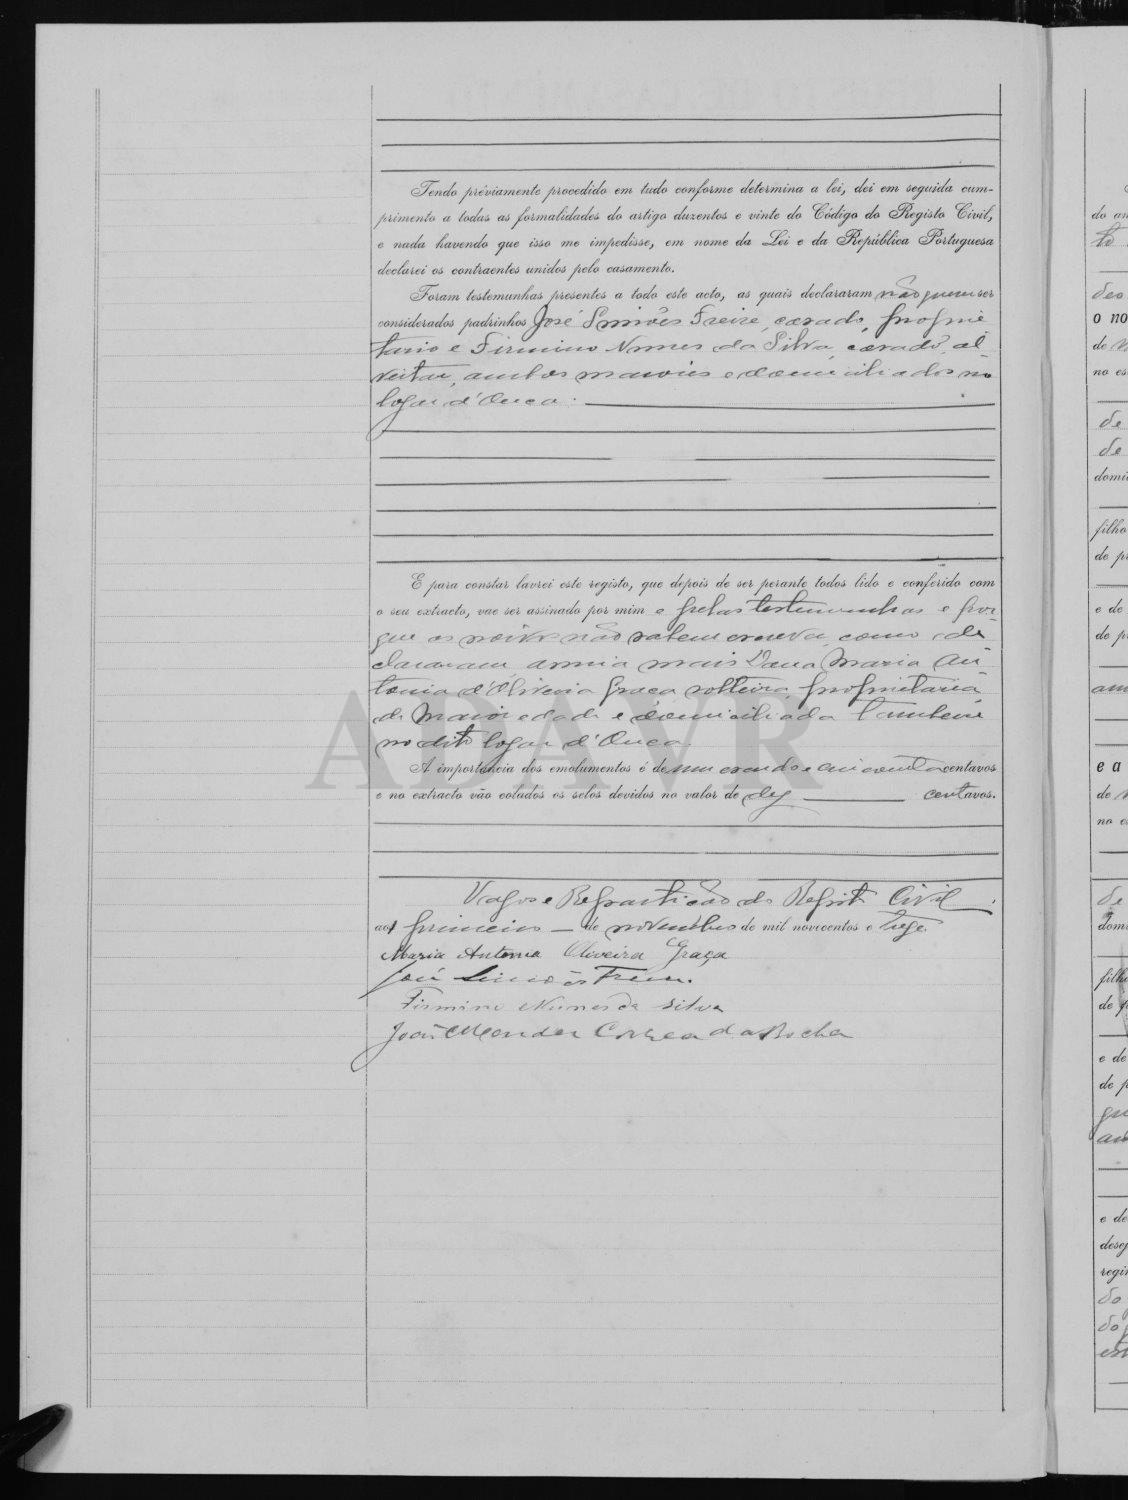 Tendo préviamente procedido em tudo conforme determina a lei, dei em seguida cum-
primento a todas as formalidades do artigo duzentos e vinte do Código do Registo Civil,
e nada havendo que isso me impedisse, em nome da Lei e da República Portuguesa
declarei os contraentes unidos pelo casamento.
Foram testemunhas presentes a todo este acto, as quais declararam não querem ser
considerados padrinhos José Simões Freire, casado, proprie
tario e Firmino Nunes da Silva, casado, al
veitar, ambos maiores e domiciliados no
logar d'Ouca.
E para constar lavrei este registo, que depois de ser perante todos lido e conferido com
o seu extracto, vae ser assinado por mim e pelas testemunhas e por
que os noivos não sabem escrever, como de
clararam, assina mais Dona Maria An
tonia d'Oliveira Graça solteira, proprietaria
de maior edade e domiciliada tambem
no dito logar d'Ouca.
A importancia dos emolumentos é de um escudo e cincoenta centavos
e no extracto vão colados os selos devidos no valor de dez centavos.
Vagos e Repartição do Registo Civil
aos primeiro de novembro de mil novecentos e treze
Maria Antonia Oliveira Graça
José Simões Freire.
Firmino Nunes da Silva
João Mendes Correa da Rocha
ADAVR
do an
to
de
o no
de
no es
de
de
domi
filho
de p
e de
de p
am
e a
de
no e
de
domi
filh
de p
e de
de p
e de
dese
regi
do
do